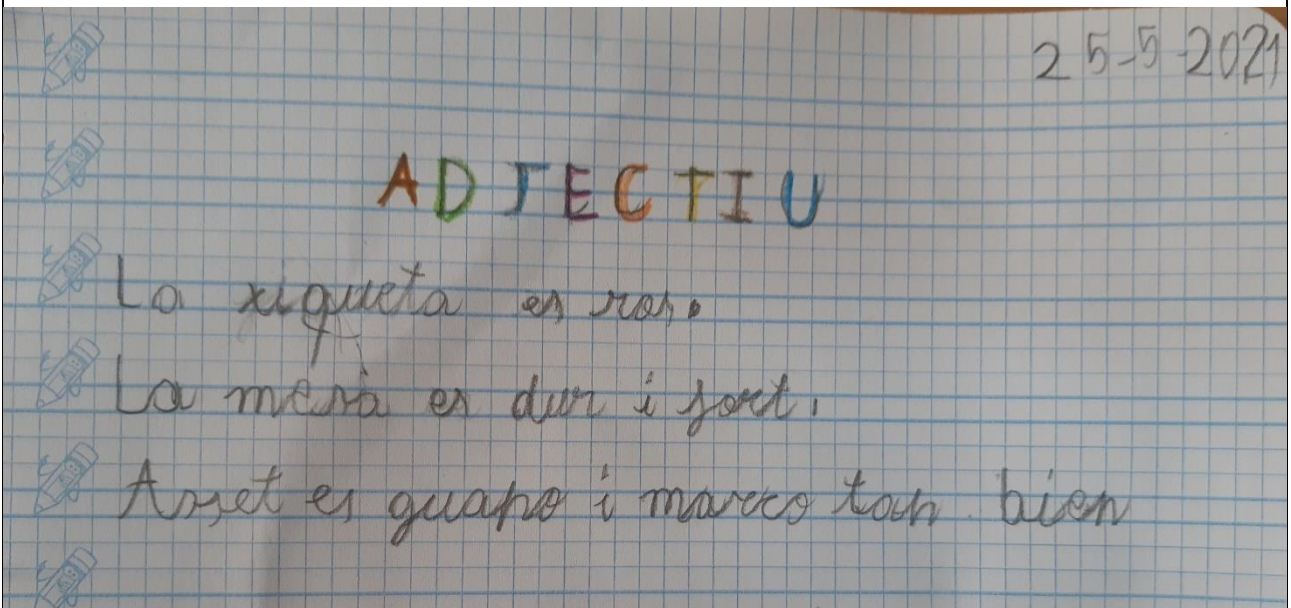 25-5-2021
ADJECTIU
La xiqueta es ros.
La mesa es dur i fort.
es guapo i marco tan bien